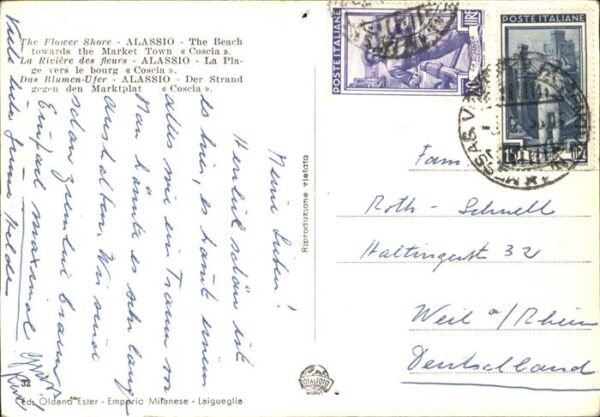 The Flower Shore - ALASSIO - The Beach
towards the Market Town « Coscia ».
La Rivière des fleurs - ALASSIO - La Pla-
ge vers le bourg « Coscia ».
Das Blumen-Ufer - ALASSIO - Der Strand
gegen den Marktplat « Coscia ».
Meine Lieben!
Herrlich schön ist
es hier, es kommt einem
alles wie ein Traum vor
Man könnte es sehr lange
aushalten. Wir sind
schon ziemlich braun
Einfach maximal
Viele liebe Grüsse
Riproduzione vietata
POSTE ITALIANE
LIRE
POSTE ITALIANE
15
Fam.
Roth - Schnell
Haltingerstr 32
Weil a/Rhein
Deutschland
32
Edi. Oldano Ester - Emporio Milanese - Laigueglia